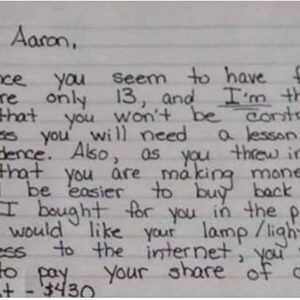 Aaron,
you seem to have
only 13, and I'm
that you won't be
you will need a lesson
Also, as you threw in
that you are making
be easier to buy back
I bought for you in the
would like your lamp/
to the internet, you
to pay your share of
- $430